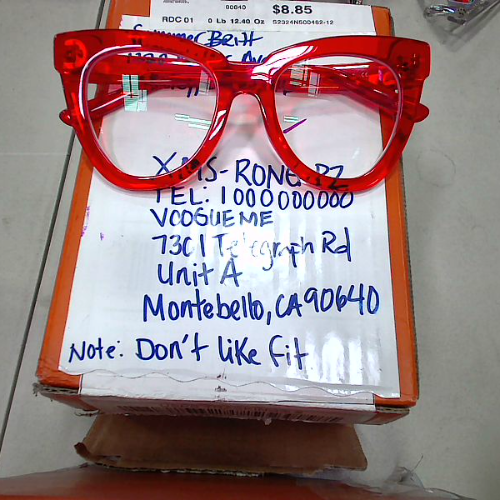 00640
$8.85
RDC 01 0 Lb 12.40 Oz
Summer Britt
XMS-RONG
TEL: 1000000000
VOOGUEME
7301 Telegraph Rd
Unit A
Montebello, CA 90640
Note: Don't like fit